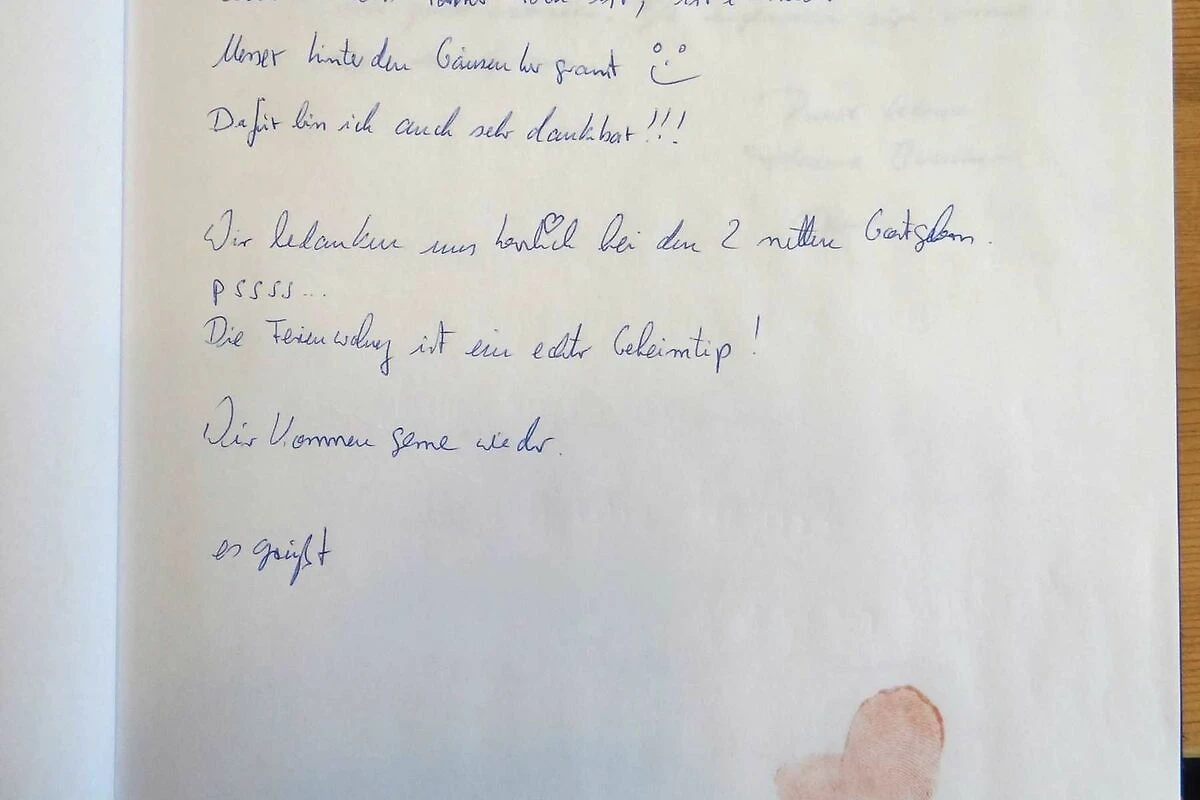 Messer hinter den
Dafür bin ich auch sehr dankbar!!!
Wir bedanken uns herzlich bei den 2 netten Gastgebern.
pssss...
Die Ferienwohng ist ein echter Geheimtip!
Wir kommen gerne wieder.
es grüßt